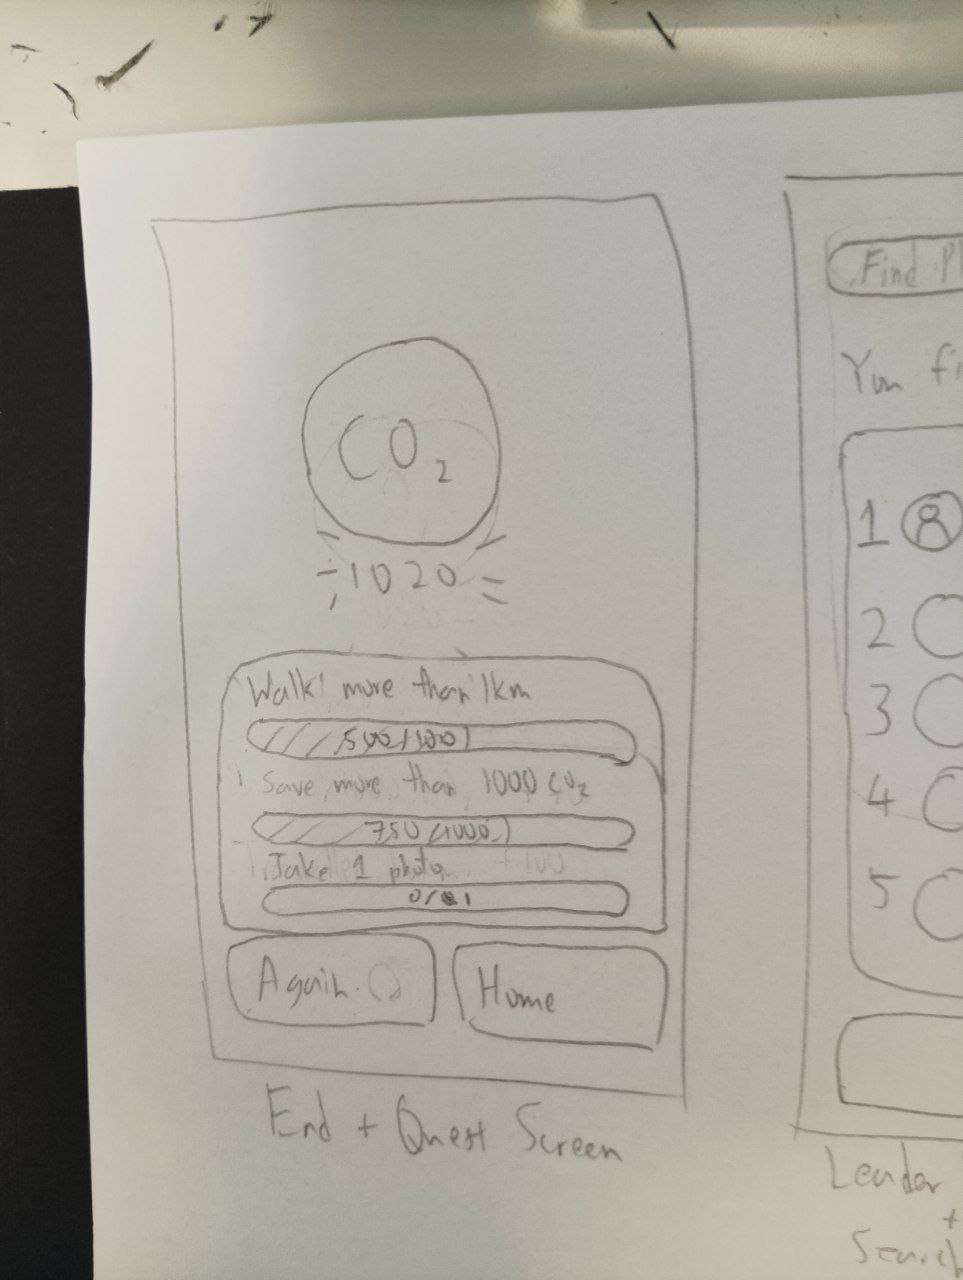 CO₂
1020
Walk more than 1km
Save more than 1000 CO₂
750/1000
Take 1 photo +100
0/1
Again
Home
End + Quest Screen
Find
You
1
2
3
4
5
Leader
+
Search